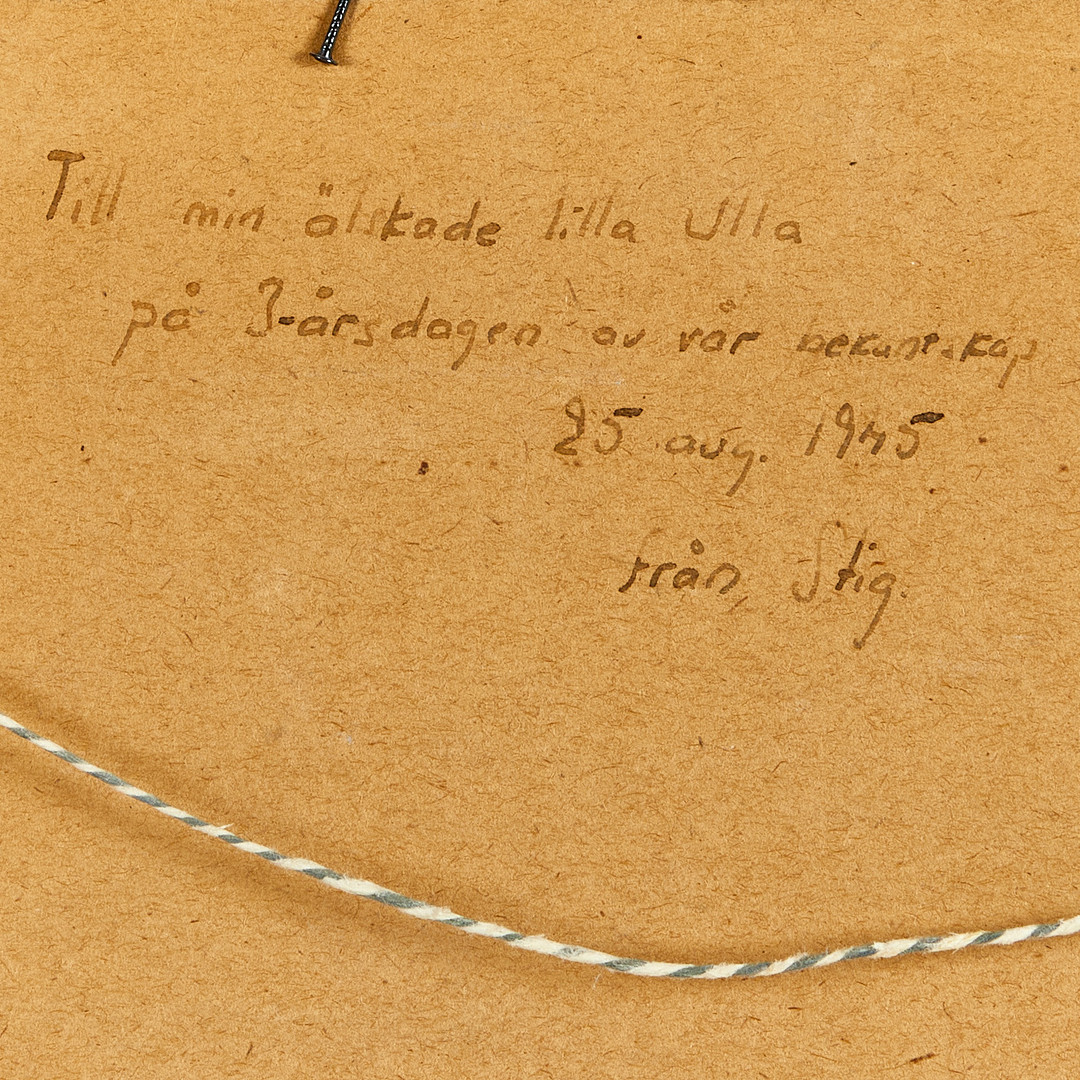 Till min älskade lilla Ulla
på 3-årsdagen av vår bekantskap
25 aug. 1945
från Stig.